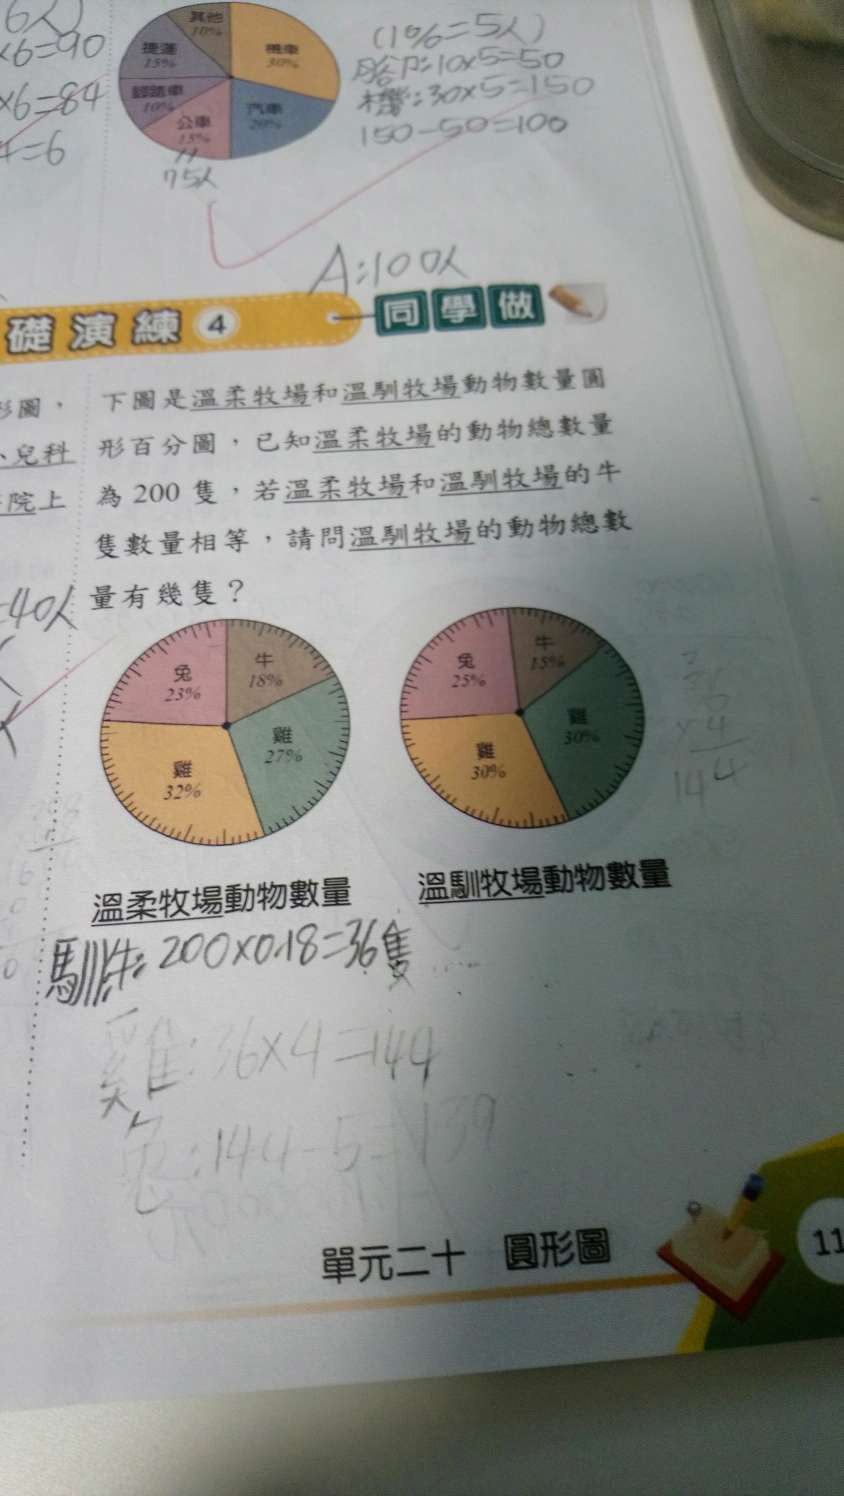 6人)
×6=90
×6=84
4=6
其他
10%
捷運
15%
腳踏車
10%
公車
15%
機車
30%
汽車
20%
75人
(1%=5人)
腳:10×5=50
機:30×5=150
150-50=100
A:100人
礎演練 4
同學做
形圖，
小兒科
院上
=40人
下圖是溫柔牧場和溫馴牧場動物數量圓
形百分圖，已知溫柔牧場的動物總數量
為200隻，若溫柔牧場和溫馴牧場的牛
隻數量相等，請問溫馴牧場的動物總數
量有幾隻？
兔
23%
牛
18%
雞
27%
雞
32%
溫柔牧場動物數量
兔
25%
牛
15%
雞
30%
雞
30%
溫馴牧場動物數量
×4
144
馴牛:200×0.18=36隻
雞:36×4=144
兔:144-5=139
單元二十 圓形圖
11